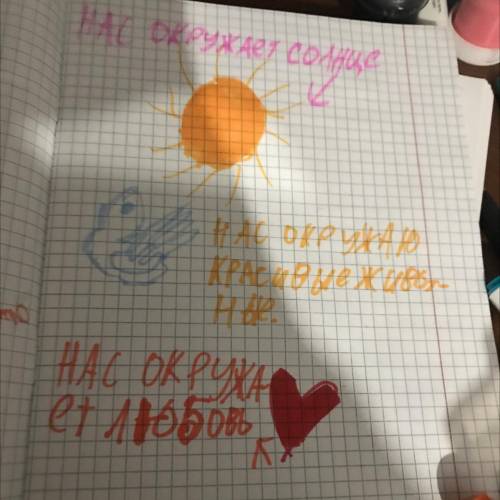 НАС ОКРУЖАЕТ СОЛНЦЕ
НАС ОКРУЖАЮ
КРАСИВЫЕ ЖИВОТ-
НЫЕ.
НАС ОКРУЖА
ЕТ ЛЮБОВЬ